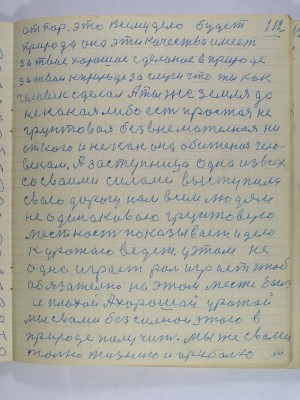 от пор. это Всему дело будет 112
природа она эти качества имеет
за твие хорошие сделание в природе
за твои к природе заслуги что ты как
человек сделал А ты же земля до
не какая либо ест простая не
грунтовая без внемателная ни
от кого и не как она обижена чело-
веком. А заступница одна из всех
со своими силами выступила
свою дорогу нам всем людям
не одинакового грунтовую
местност показывает и дело
к урожаю ведет, у этом не
одна играет рол играет чтоб
обязателно на этом месте был
и плохой А хороший урожай
мы своими без силной этого в
природе получит. Мы же своим
толко жизнею и приболю